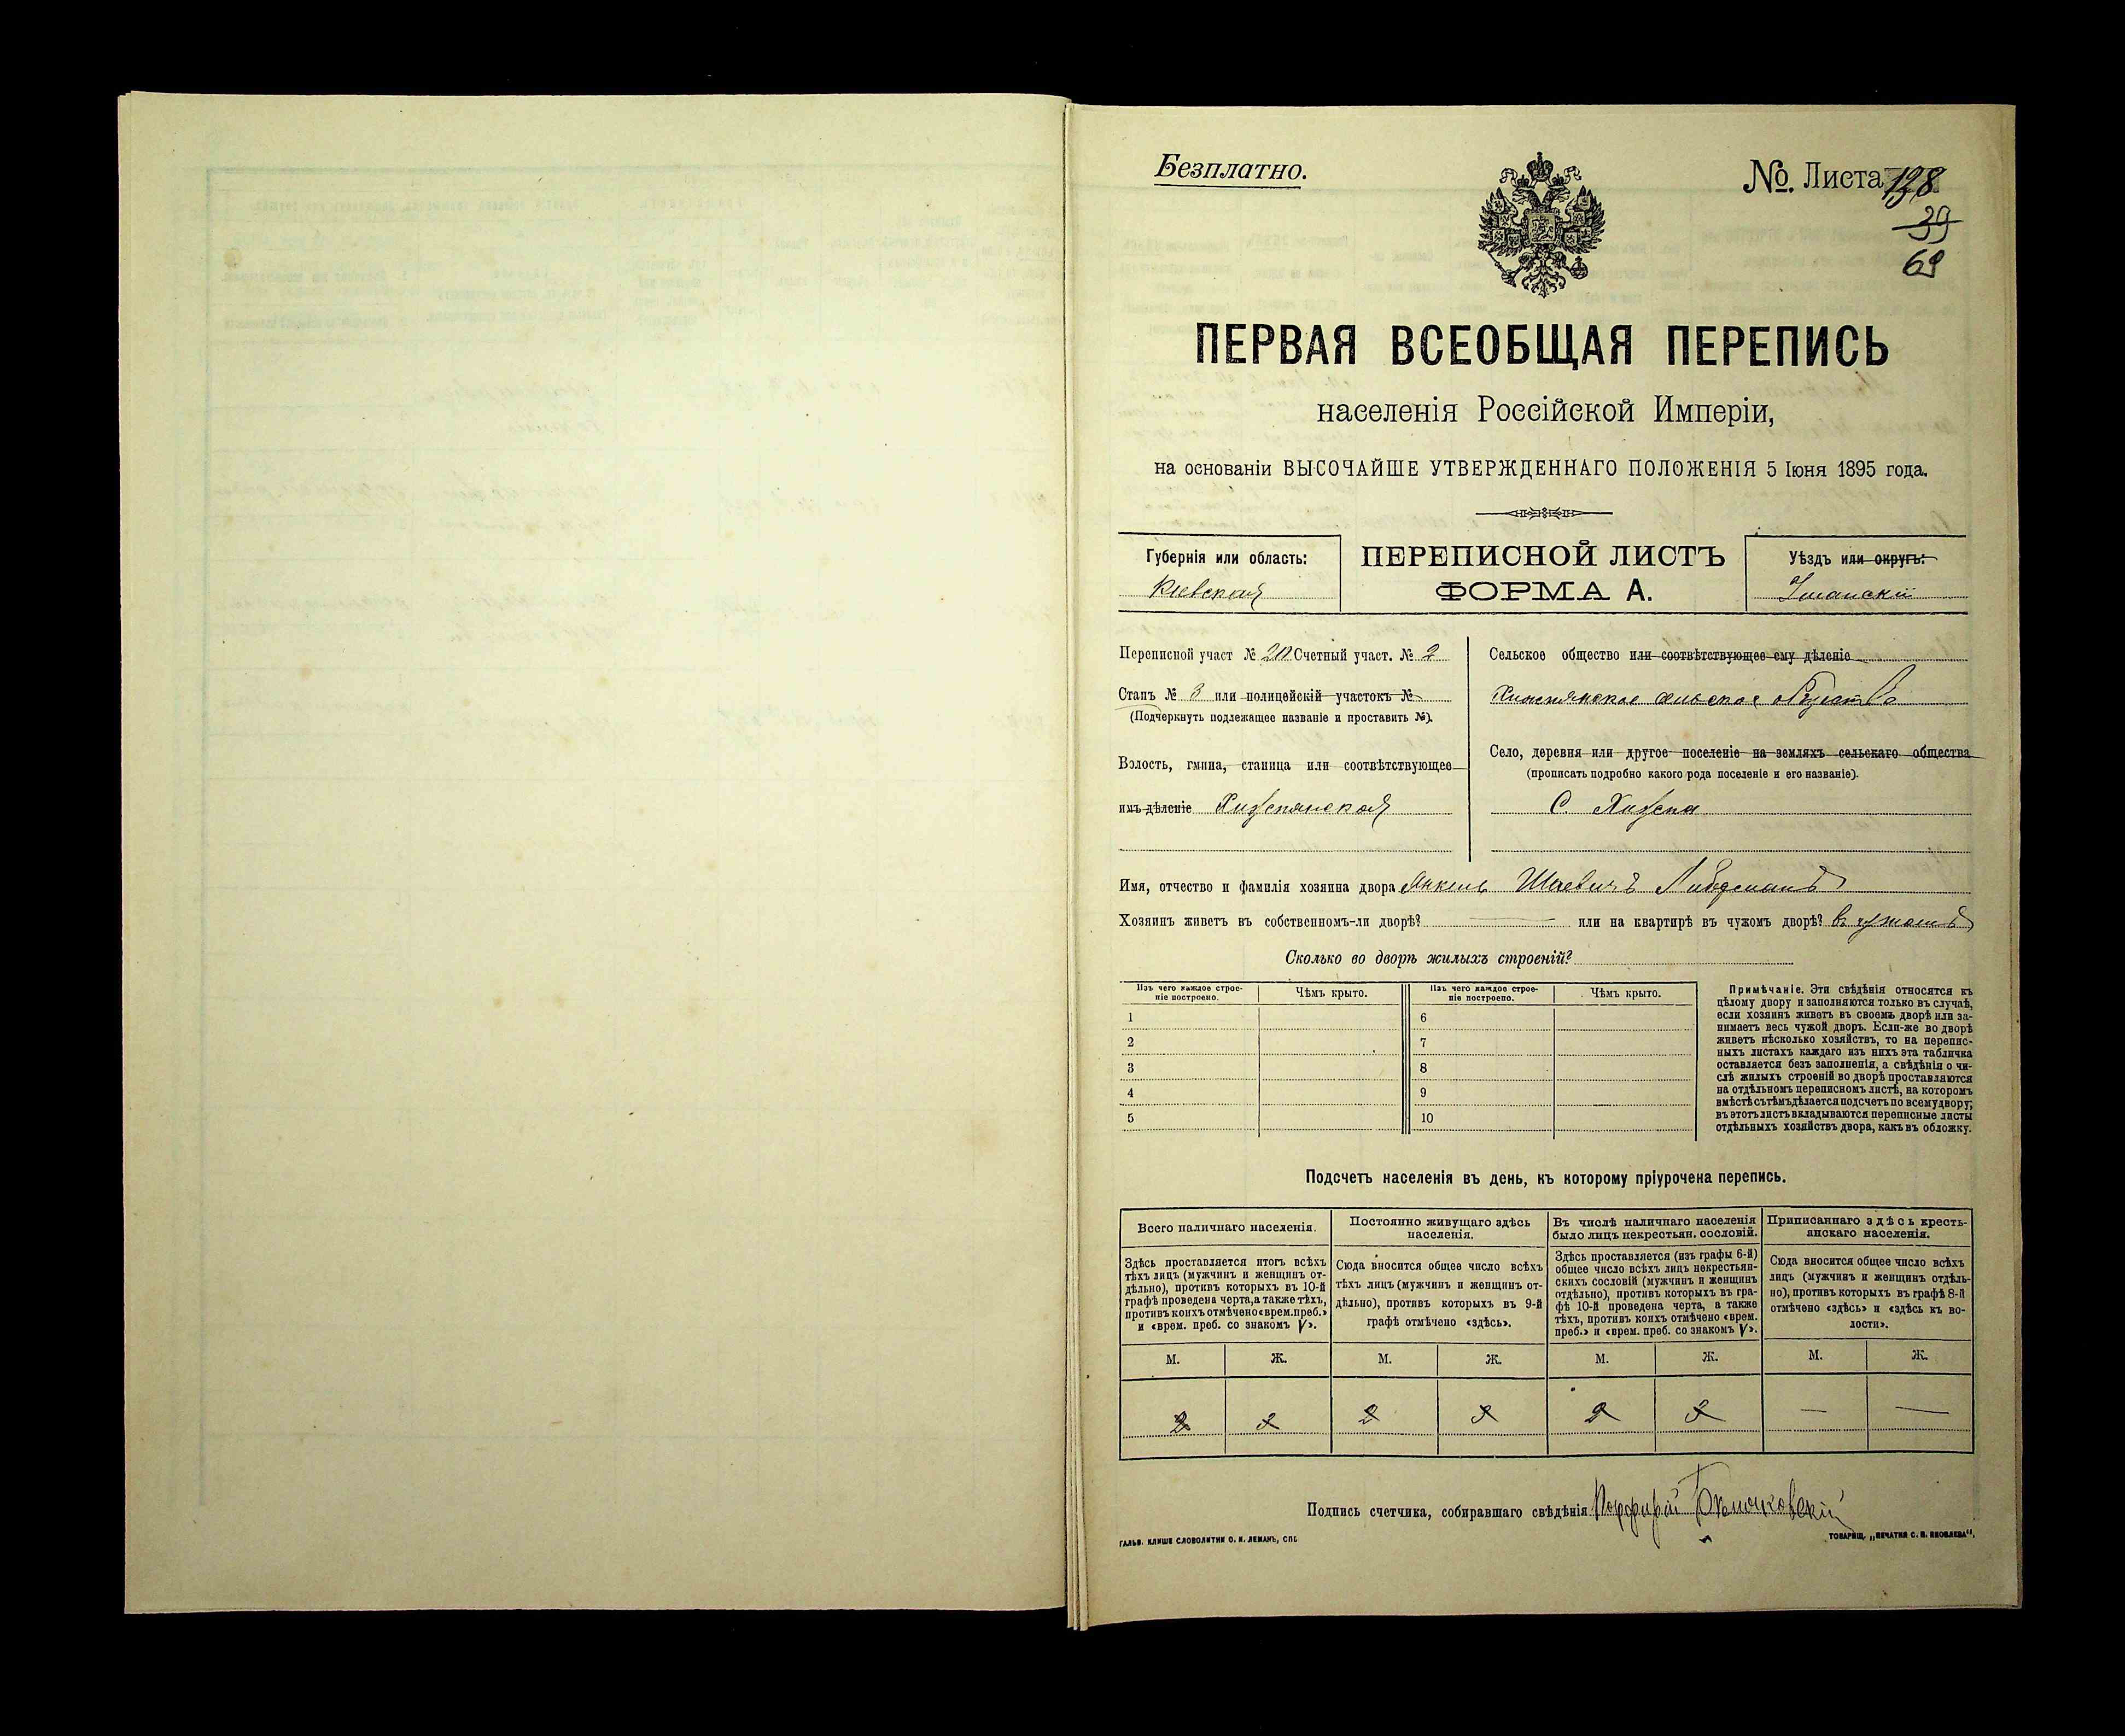 Безплатно.
№. Листа 138
39
69
ПЕРВАЯ ВСЕОБЩАЯ ПЕРЕПИСЬ
населенія Россійской Имперіи,
на основаніи ВЫСОЧАЙШЕ УТВЕРЖДЕННАГО ПОЛОЖЕНІЯ 5 Іюня 1895 года.
Губернія или область:
Кіевская
ПЕРЕПИСНОЙ ЛИСТЪ
ФОРМА А.
Уѣздъ или округъ:
Уманскій
Переписной участ № 20 Счетный участ. № 2
Станъ № 3 или полицейскій участокъ №
(Подчеркнуть подлежащее названіе и проставить №).
Волость, гмина, станица или соотвѣтствующее
имъ дѣленіе Хижнянская
Сельское общество или соотвѣтствующее ему дѣленіе
сельское общество
Село, деревня или другое поселеніе на земляхъ сельскаго общества
(прописать подробно какого рода поселеніе и его названіе).
С. Хижна
Имя, отчество и фамилія хозяина двора Янкель Шаевичъ Либерманъ
Хозяинъ живетъ въ собственномъ-ли дворѣ? или на квартирѣ въ чужомъ дворѣ? въ чужомъ
Сколько во дворѣ жилыхъ строеній?
Изъ чего каждое строе-
ніе построено.
Чѣмъ крыто.
Изъ чего каждое строе-
ніе построено.
Чѣмъ крыто.
1 6
2 7
3 8
4 9
5 10
Примѣчаніе. Эти свѣдѣнія относятся къ
цѣлому двору и заполняются только въ случаѣ,
если хозяинъ живетъ въ своемъ дворѣ или за-
нимаетъ весь чужой дворъ. Если-же во дворѣ
живетъ нѣсколько хозяйствъ, то на перепис-
ныхъ листахъ каждаго изъ нихъ эта табличка
оставляется безъ заполненія, а свѣдѣнія о чи-
слѣ жилыхъ строеній во дворѣ проставляются
на отдѣльномъ переписномъ листѣ, на которомъ
вмѣстѣ съ тѣмъ дѣлается подсчетъ по всему двору;
въ этотъ листъ вкладываются переписные листы
отдѣльныхъ хозяйствъ двора, какъ въ обложку.
Подсчетъ населенія въ день, къ которому пріурочена перепись.
Всего наличнаго населенія.
Здѣсь проставляется итогъ всѣхъ
тѣхъ лицъ (мужчинъ и женщинъ от-
дѣльно), противъ которыхъ въ 10-й
графѣ проведена черта, а также тѣхъ,
противъ коихъ отмѣчено «врем. преб.»
и «врем. преб. со знакомъ V».
Постоянно живущаго здѣсь
населенія.
Сюда вносится общее число всѣхъ
тѣхъ лицъ (мужчинъ и женщинъ от-
дѣльно), противъ которыхъ въ 9-й
графѣ отмѣчено «здѣсь».
Въ числѣ наличнаго населенія
было лицъ некрестьян. сословій.
Здѣсь проставляется (изъ графы 6-й)
общее число всѣхъ лицъ некрестьян-
скихъ сословій (мужчинъ и женщинъ
отдѣльно), противъ которыхъ въ гра-
фѣ 10-й проведена черта, а также
тѣхъ, противъ коихъ отмѣчено «врем.
преб.» и «врем. преб. со знакомъ V».
Приписаннаго здѣсь кресть-
янскаго населенія.
Сюда вносится общее число всѣхъ
лицъ (мужчинъ и женщинъ отдѣль-
но), противъ которыхъ въ графѣ 8-й
отмѣчено «здѣсь» и «здѣсь къ во-
лости».
М. Ж. М. Ж. М. Ж. М. Ж.
2 2 2 2 2 2 — —
Подпись счетчика, собиравшаго свѣдѣнія Порфирій
ГАЛЬВ. КЛИШЕ СЛОВОЛИТНИ О. И. ЛЕМАНЪ, СПБ.
ТОВАРИЩ. „ПЕЧАТНЯ С. П. ЯКОВЛЕВА“.